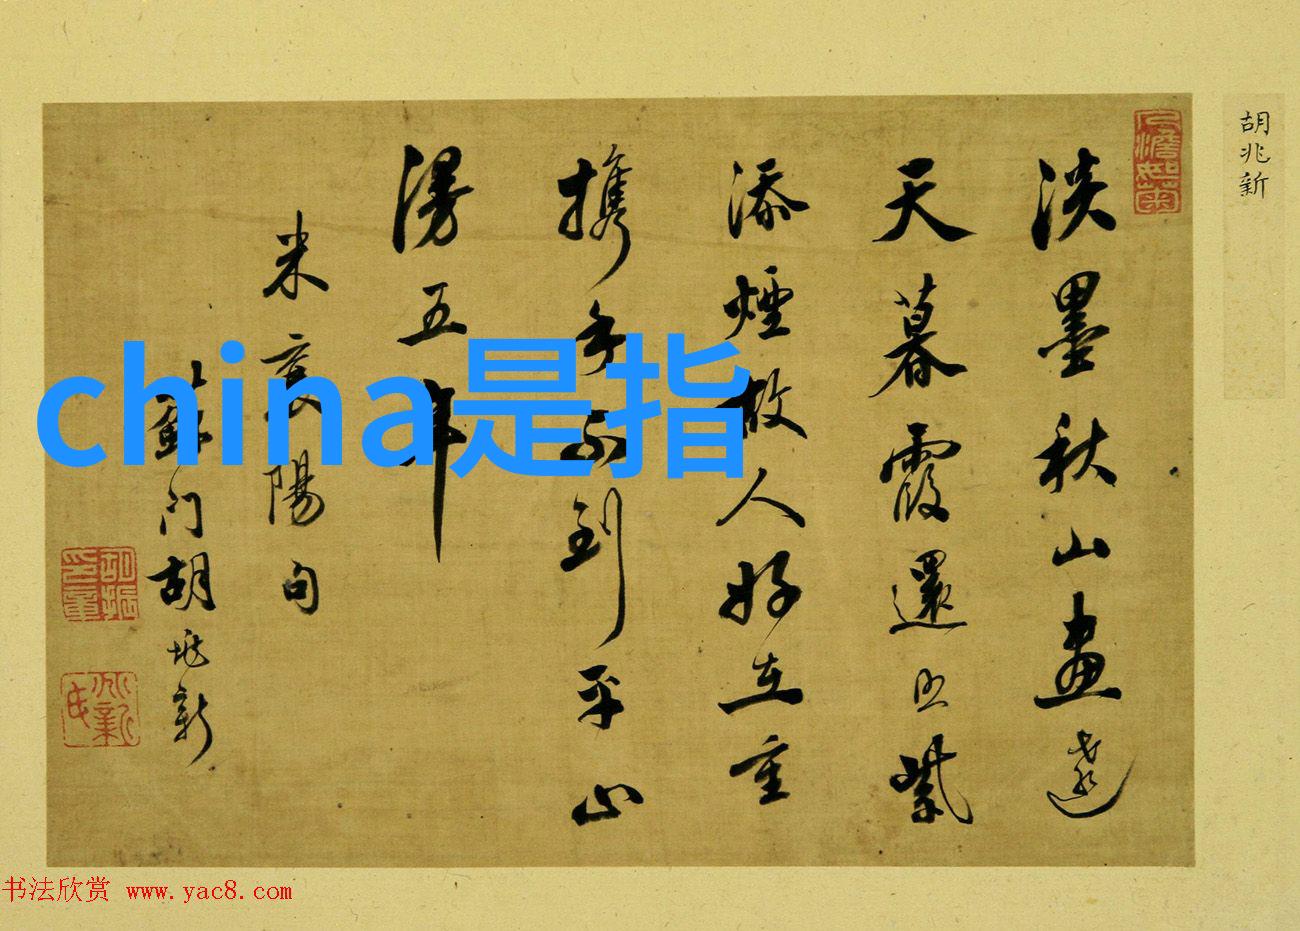 胡兆新
淡墨秋山畫遠
天暮霞還照紫
添煙故人好在重
携手不到平山
漫五年
米襄陽句
蘇門胡兆新
china是指
书法欣赏 www.yac8.com